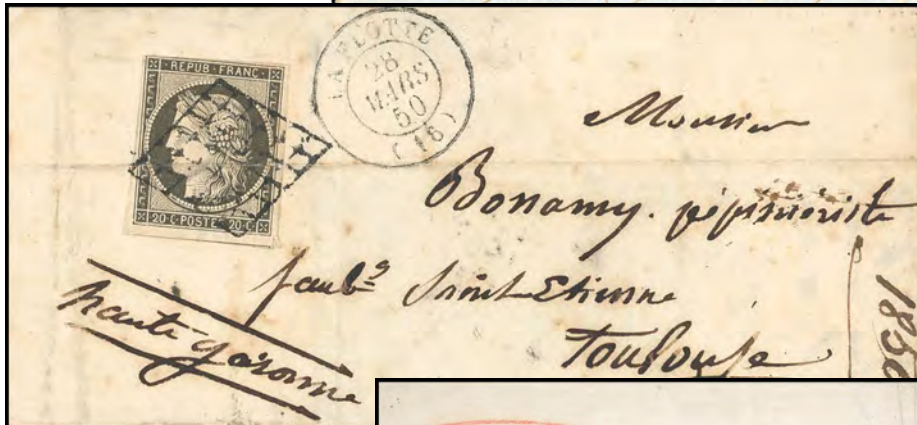 REPUB. FRANC.
20 C. POSTE 20 C.
LA FLOTTE
28
MARS
50
(16)
Monsieur
Bonamy. pépiniériste
faubg Saint-Etienne
Toulouse
haute-garonne
1850